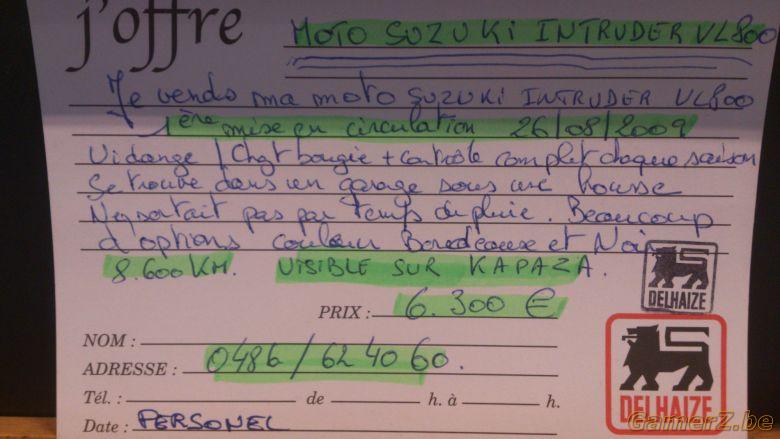 j'offre
MOTO SUZUKI INTRUDER VL800
Je vends ma moto SUZUKI INTRUDER VL800
1ère mise en circulation 26/08/2009
Vidange / Chgt bougie + contrôle complet chaque saison
Se trouve dans un garage sous une housse
Ne sortait pas par temps de pluie. Beaucoup
d'options couleur Bordeaux et Noir
8.600 KM. VISIBLE SUR KAPAZA.
DELHAIZE
PRIX : 6.300 €
NOM :
ADRESSE : 0486/62 40 60.
DELHAIZE
Tél. : de h. à h.
Date : PERSONEL
GamerZ.be